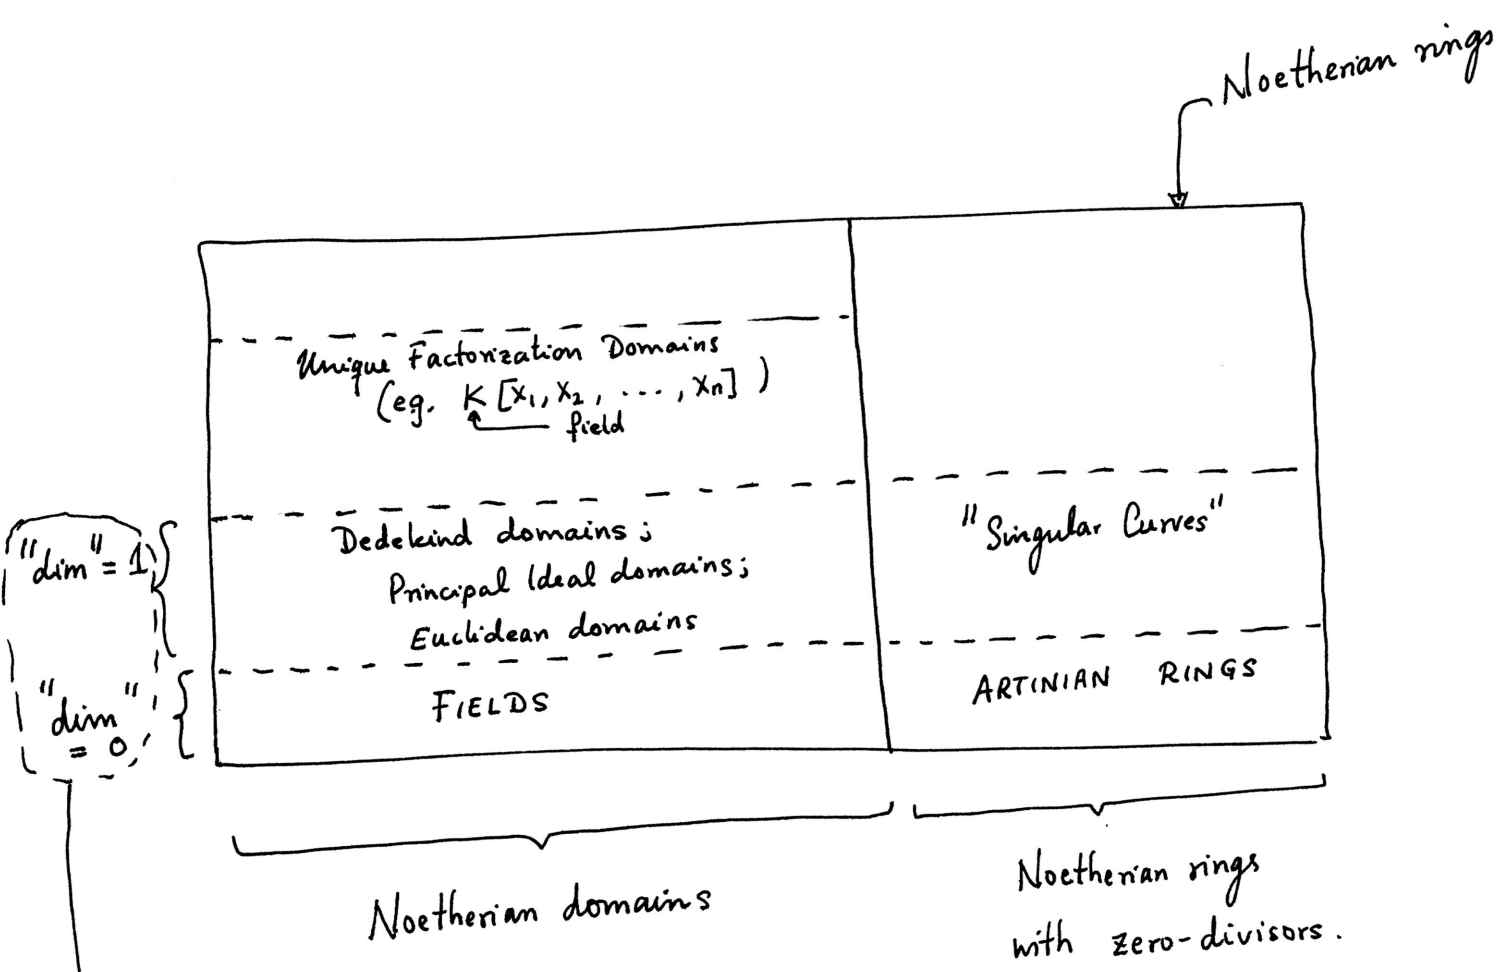 Noetherian rings
Unique Factorization Domains
(eg. K[x₁, x₂, ..., xₙ])
field
"dim" = 1
Dedekind domains;
Principal Ideal domains;
Euclidean domains
"Singular Curves"
"dim"
= 0
FIELDS
ARTINIAN RINGS
Noetherian domains
Noetherian rings
with zero-divisors.